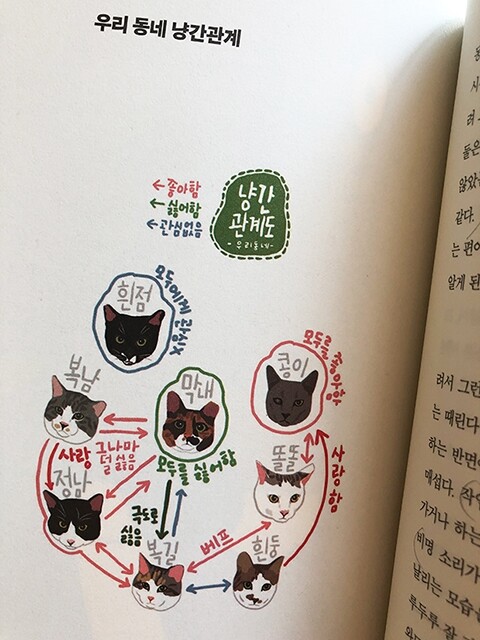 우리 동네 냥간관계
←좋아함
←싫어함
←관심없음
냥간
관계도
-우리동네-
흰점
모두에게 관심X
복남
막내
모두를 싫어함
콩이
모두를 좋아함
사랑
그나마
덜 싫음
정남
똘똘
사랑함
극도로
싫음
복길
베프
흰둥
들은
않았
같다.
는 편이
알게 된
려서 그런
는 때린다
하는 반면에
매섭다.
가거나 하는
비명 소리가
날리는 모습은
루두루 잘